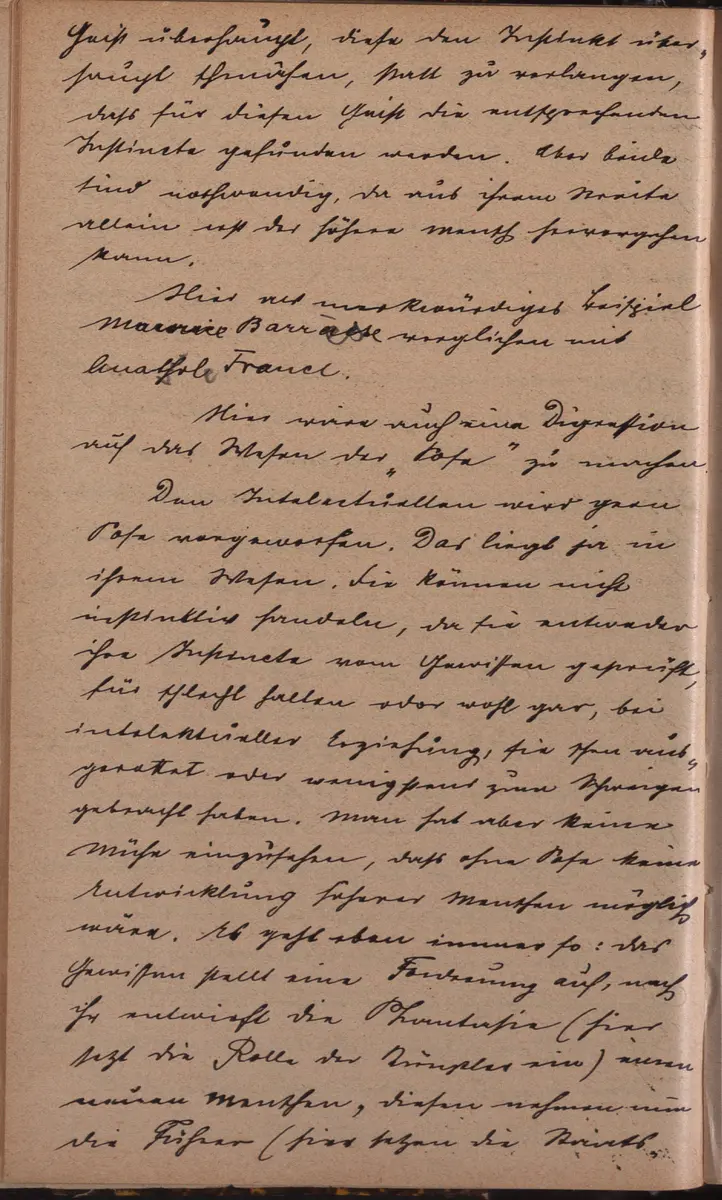 Geist überhaupt, diese den Instinkt über-
haupt schmähen, statt zu verlangen,
dass für diesen Geist die entsprechenden
Instincte gefunden werden. Aber beide
sind nothwendig, da aus ihrem Streite
allein erst der höhere Mensch hervorgehen
kann.
Hier als merkwürdiges Beispiel
Maurice Barrès verglichen mit
Anatole France.
Hier wäre auch eine Digression
auf das Wesen der „Pose" zu machen.
Den Intelectuellen wird gern
Pose vorgeworfen. Das liegt ja in
ihrem Wesen. Sie können nicht
instinktiv handeln, da sie entweder
ihre Instincte vom Gewissen geprüft,
für schlecht halten oder wohl gar, bei
intelektueller Erziehung, sie schon aus-
gerottet oder wenigstens zum Schweigen
gebracht haben. Man hat aber keine
Mühe einzusehen, dass ohne Pose keine
Entwicklung höherer Menschen möglich
wäre. Es geht eben immer so: das
Gewissen stellt eine Forderung auf, nach
ihr entwirft die Phantasie (hier
setzt die Rolle der Künstler ein) einen
neuen Menschen, diesen nehmen nun
die Führer (hier setzen die Staats-